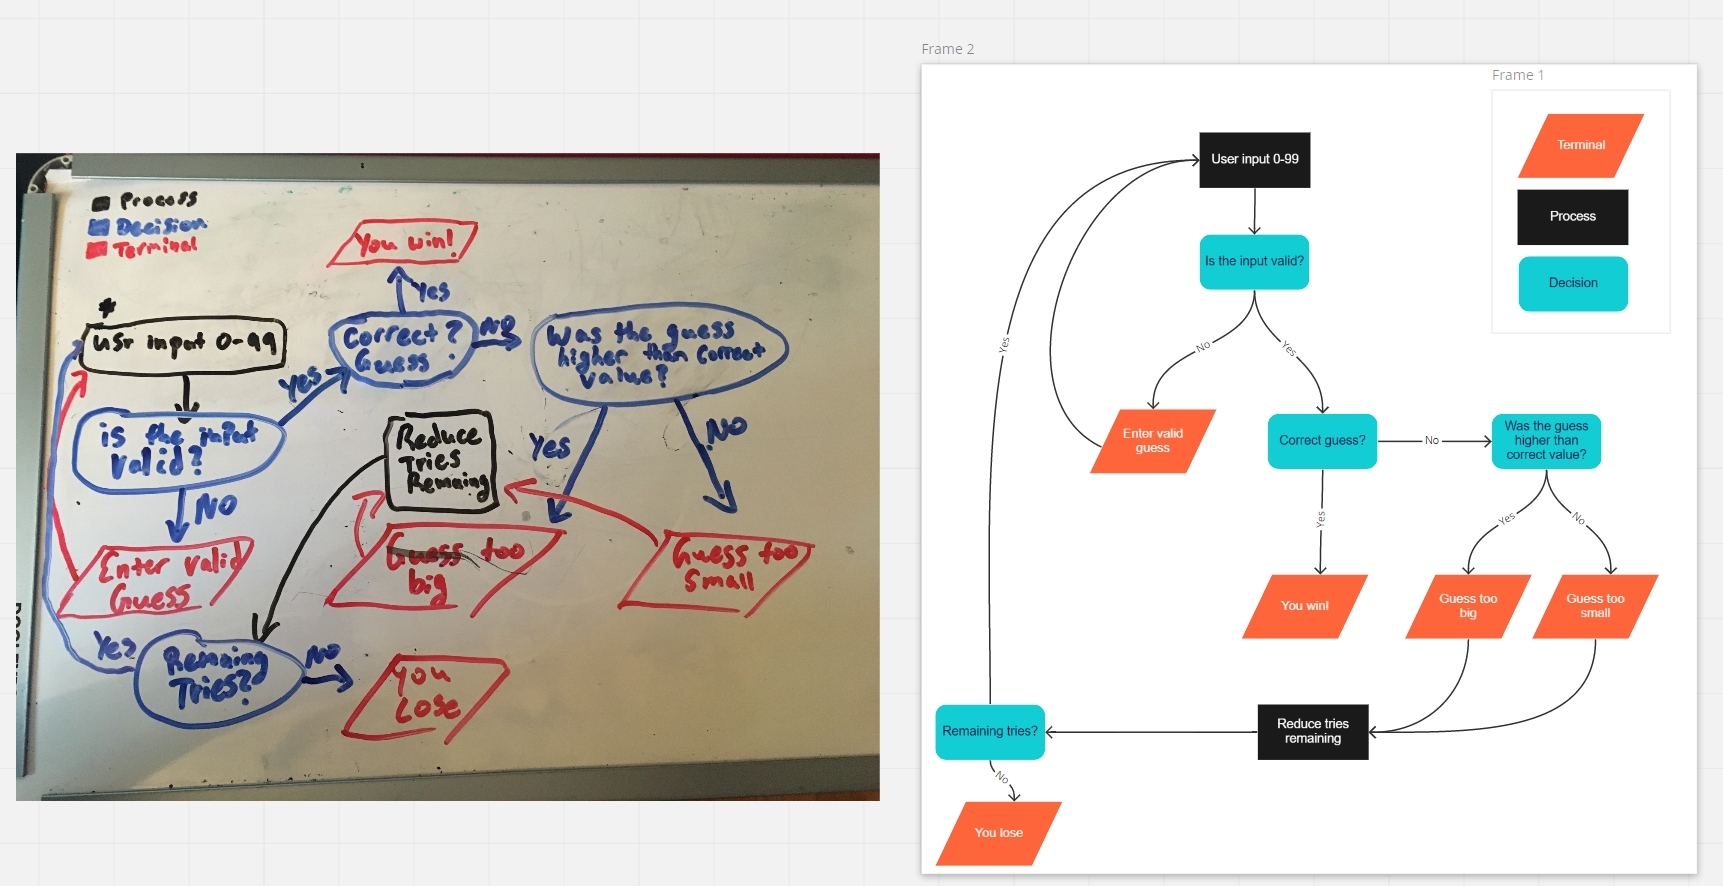 Process
Decision
Terminal
You win!
Yes
*
usr input 0-99
Correct?
Guess
NO
Was the guess
higher than correct
value?
Yes
is the input
valid?
Reduce
Tries
Remaing
Yes
NO
NO
Enter valid
Guess
Guess too
big
Guess too
Small
Yes
Remaing
Tries?
NO
You
Lose
Frame 2
Frame 1
Terminal
Process
Decision
User input 0-99
Is the input valid?
Yes
No
Yes
Enter valid
guess
Correct guess?
No
Was the guess
higher than
correct value?
Yes
Yes
No
You win!
Guess too
big
Guess too
small
Remaining tries?
Reduce tries
remaining
No
You lose